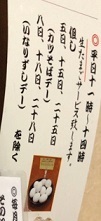 ◎平日十一時〜十四時
生たまごサービス致します。
但し
五日、十五日、二十五日
(カツそばデー)
八日、十八日、二十八日
(いなりずしデー)
を除く